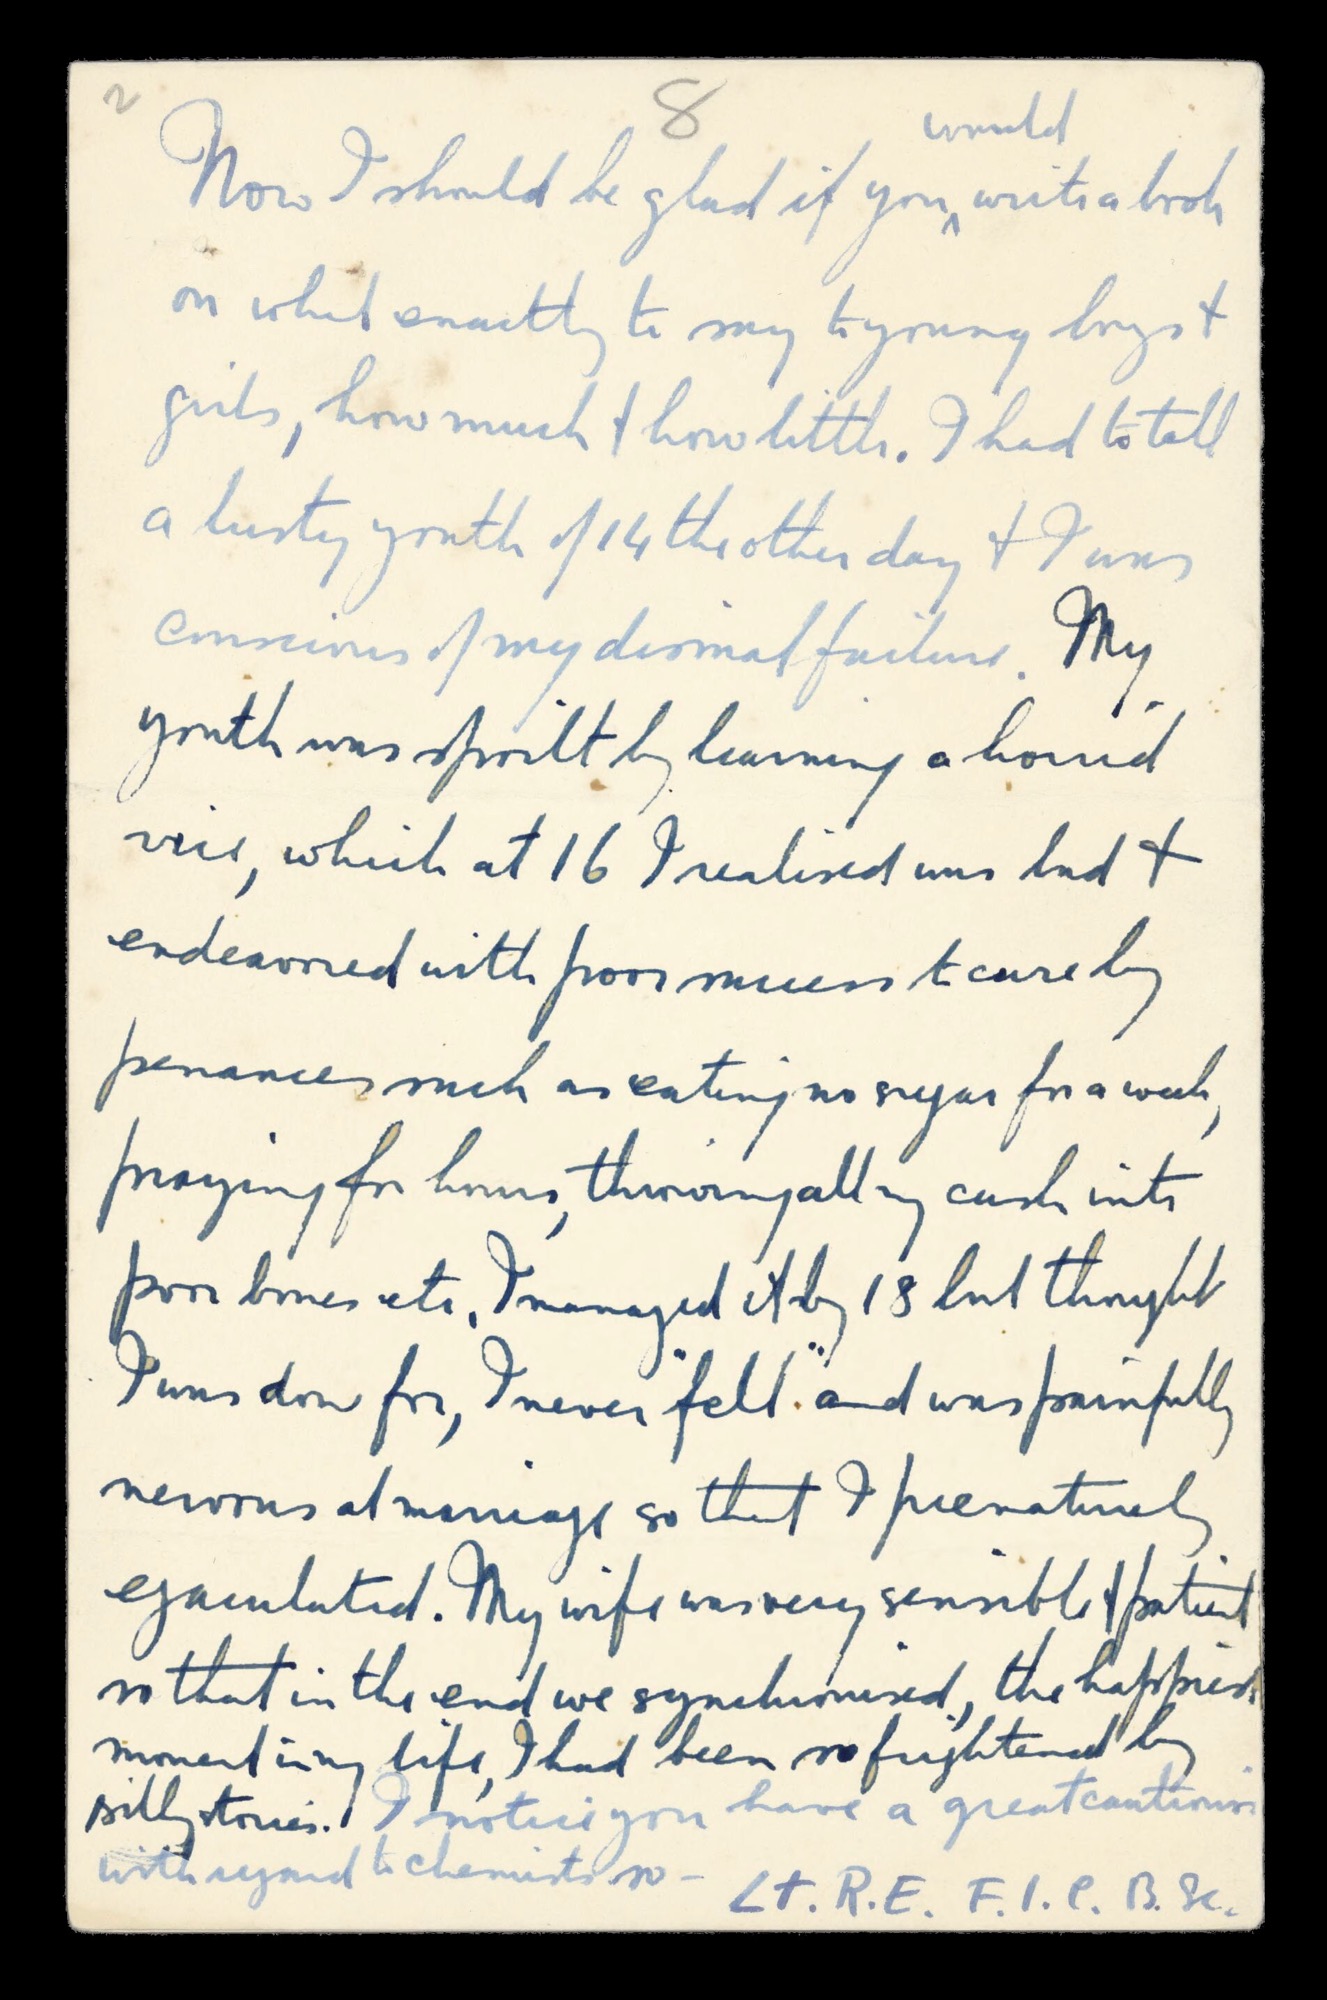 2
8
would
Now I should be glad if you ^ write a book
on what exactly to say to young boys &
girls, how much & how little. I had to tell
a lusty youth of 14 the other day & I was
conscious of my dismal failure. My
youth was spoilt by learning a horrid
vice, which at 16 I realised was bad &
endeavored with poor success to cure by
penances such as eating no sugar for a week,
praying for hours, throwing all my cash into
poor boxes etc. I managed it by 18 but thought
I was done for, I never "fell" and was painfully
nervous at marriage so that I prematurely
ejaculated. My wife was very sensible & patient
so that in the end we synchronised, the happiest
moment in my life, I had been so frightened by
silly stories. I notice you have a great
with regard to chemists so - Lt. R.E. F.I.C. B.Sc.